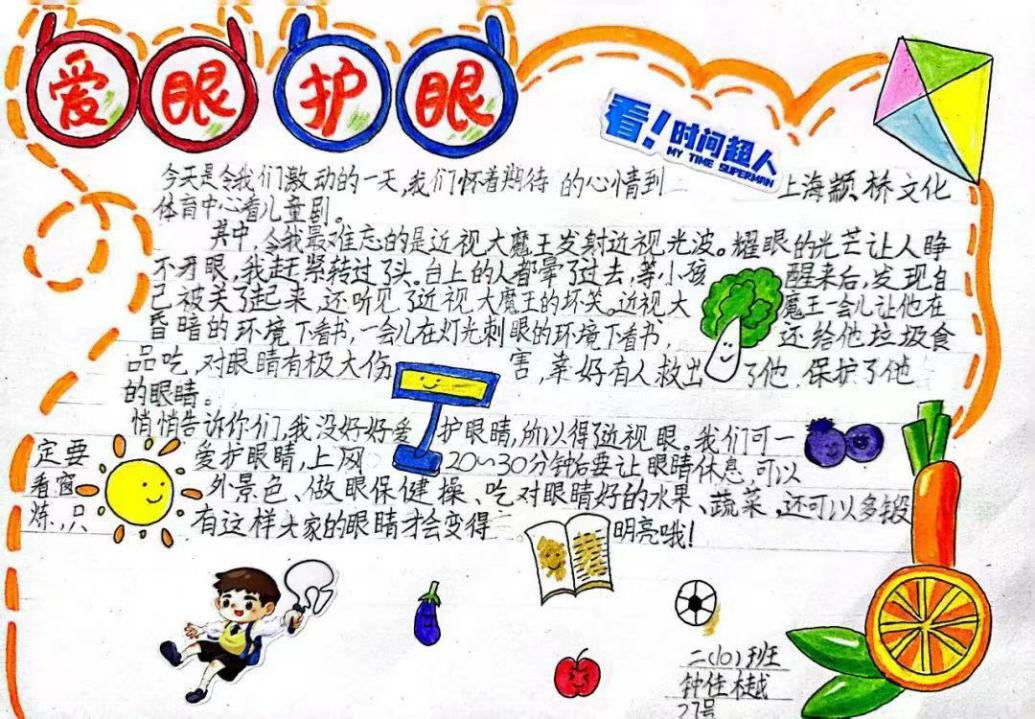 爱眼护眼
看!时间超人
MY TIME SUPERMAN
今天是令我们激动的一天,我们怀着期待的心情到上海颛桥文化
体育中心看儿童剧。
其中,令我最难忘的是近视大魔王发射近视光波。耀眼的光芒让人睁
不开眼,我赶紧转过了头。台上的人都晕了过去,等小孩醒来后,发现自
己被关了起来,还听见了近视大魔王的坏笑。近视大魔王一会儿让他在
昏暗的环境下看书,一会儿在灯光刺眼的环境下看书,还给他垃圾食
品吃,对眼睛有极大伤害,幸好有人救出了他,保护了他
的眼睛。
悄悄告诉你们,我没好好爱护眼睛,所以得了近视眼。我们可一
定要爱护眼睛,上网20~30分钟后要让眼睛休息,可以
看窗外景色、做眼保健操、吃对眼睛好的水果、蔬菜,还可以多锻
炼,只有这样大家的眼睛才会变得明亮哦!
二(10)班
钟佳樾
27号